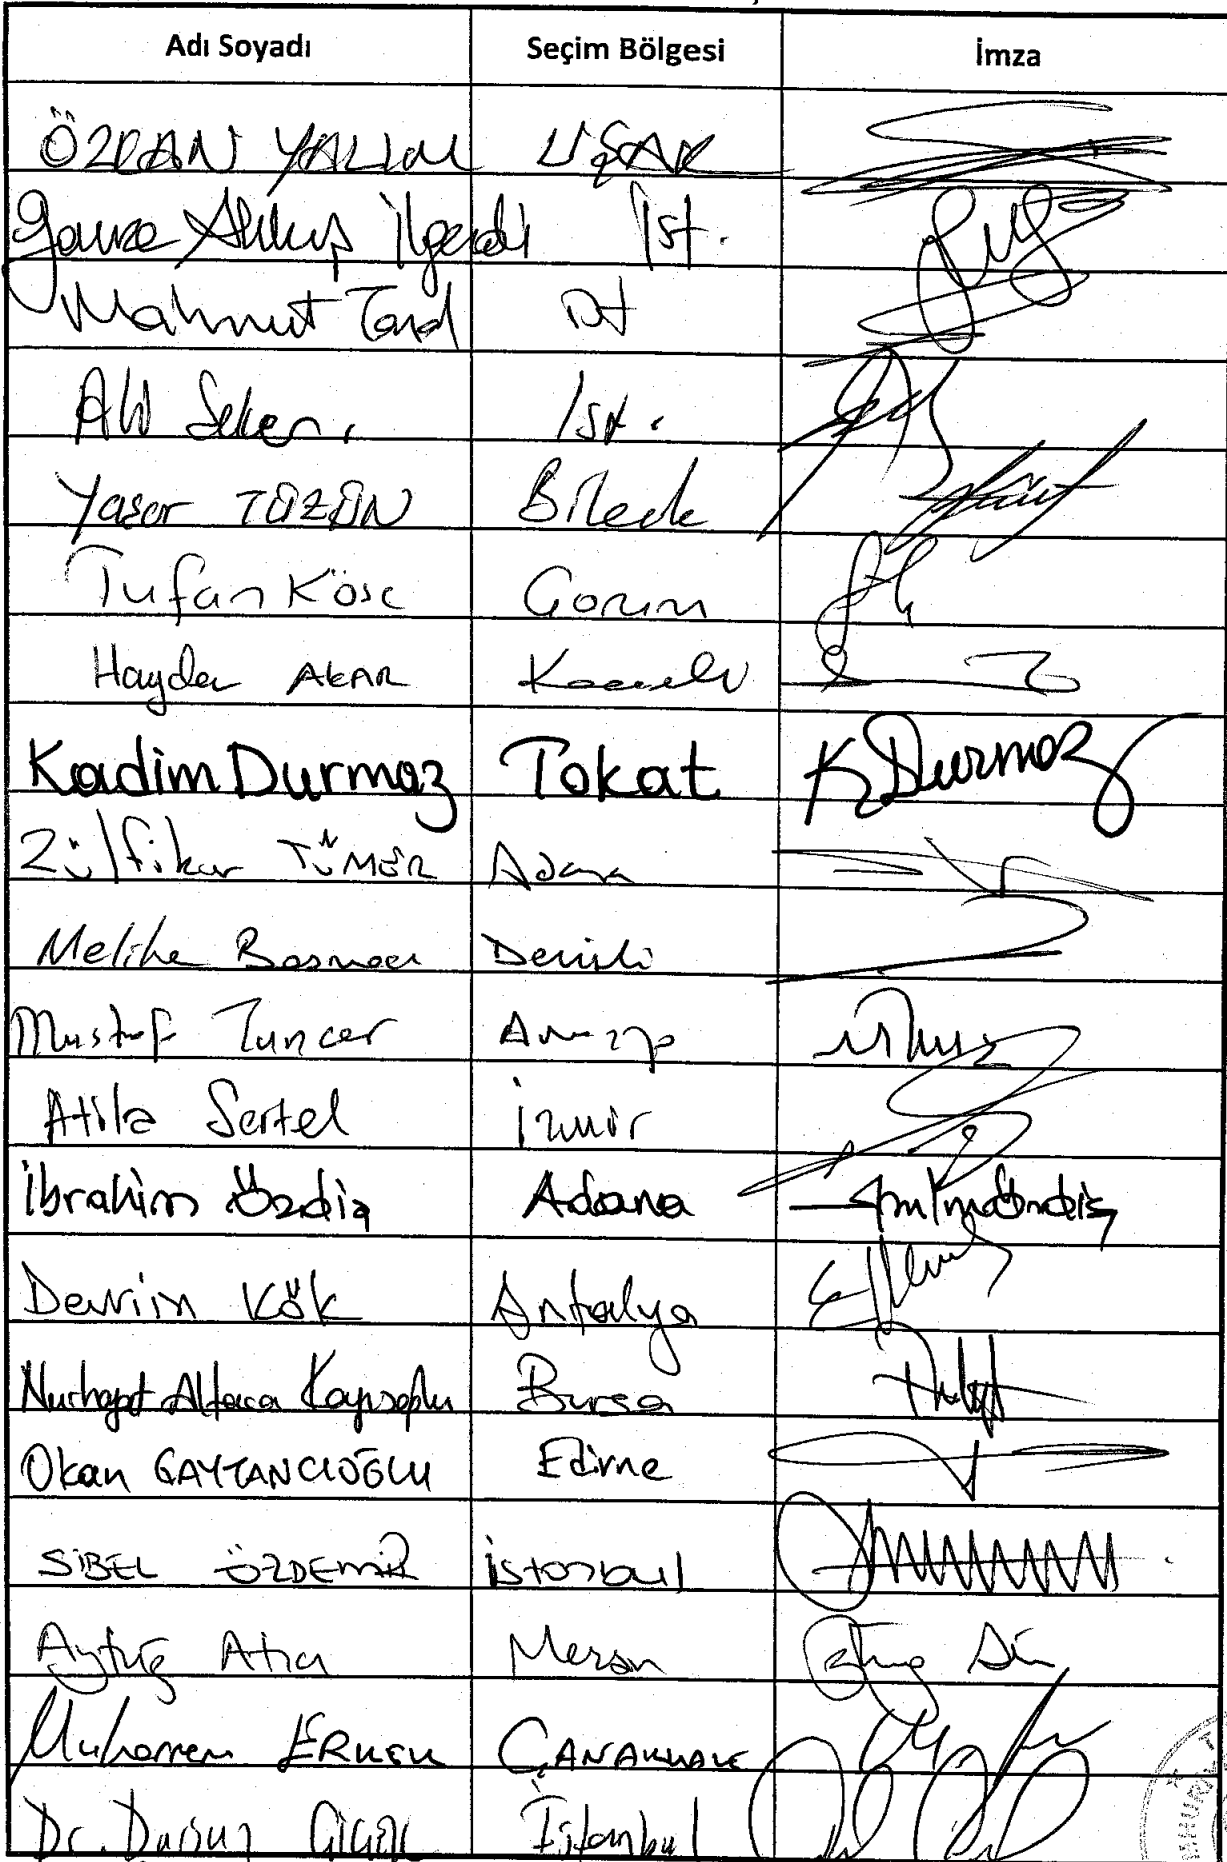 Adı Soyadı Seçim Bölgesi İmza
ÖZCAN YALIM UŞAK
Gamze Akkuş İlgezdi İst.
Mahmut Tanal İst
Ali Şeker. İst.
Yaşar TÜZÜN Bilecik
Tufan Köse Çorum
Haydar AKAR Kocaeli
Kadim Durmaz Tokat K Durmaz
Zülfikar TÜMER Adana
Melike Basmacı Denizli
Mustafa Tuncer Amasya
Atila Sertel İzmir
İbrahim Özdiş Adana
Devrim Kök Antalya
Nurhayat Altaca Kayışoğlu Bursa
Okan GAYTANCIOĞLU Edirne
SİBEL ÖZDEMİR İstanbul
Aytuğ Atıcı Mersin
Muharrem ERKEK ÇANAKKALE
Dr. Dursun ÇİÇEK İstanbul